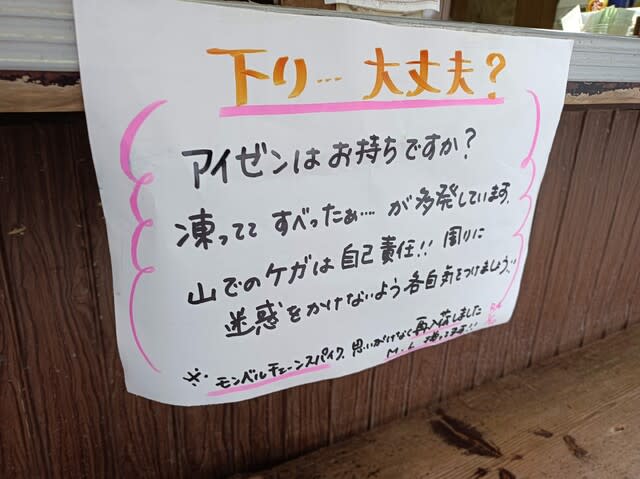 下り… 大丈夫?
アイゼンはお持ちですか?
凍ってて すべったぁ…. が多発しています。
山でのケガは自己責任!! 周りに
迷惑をかけないよう各自気をつけましょう。
※. モンベルチェーンスパイク、思いがけなく再入荷しました
M・L 揃ってます!!